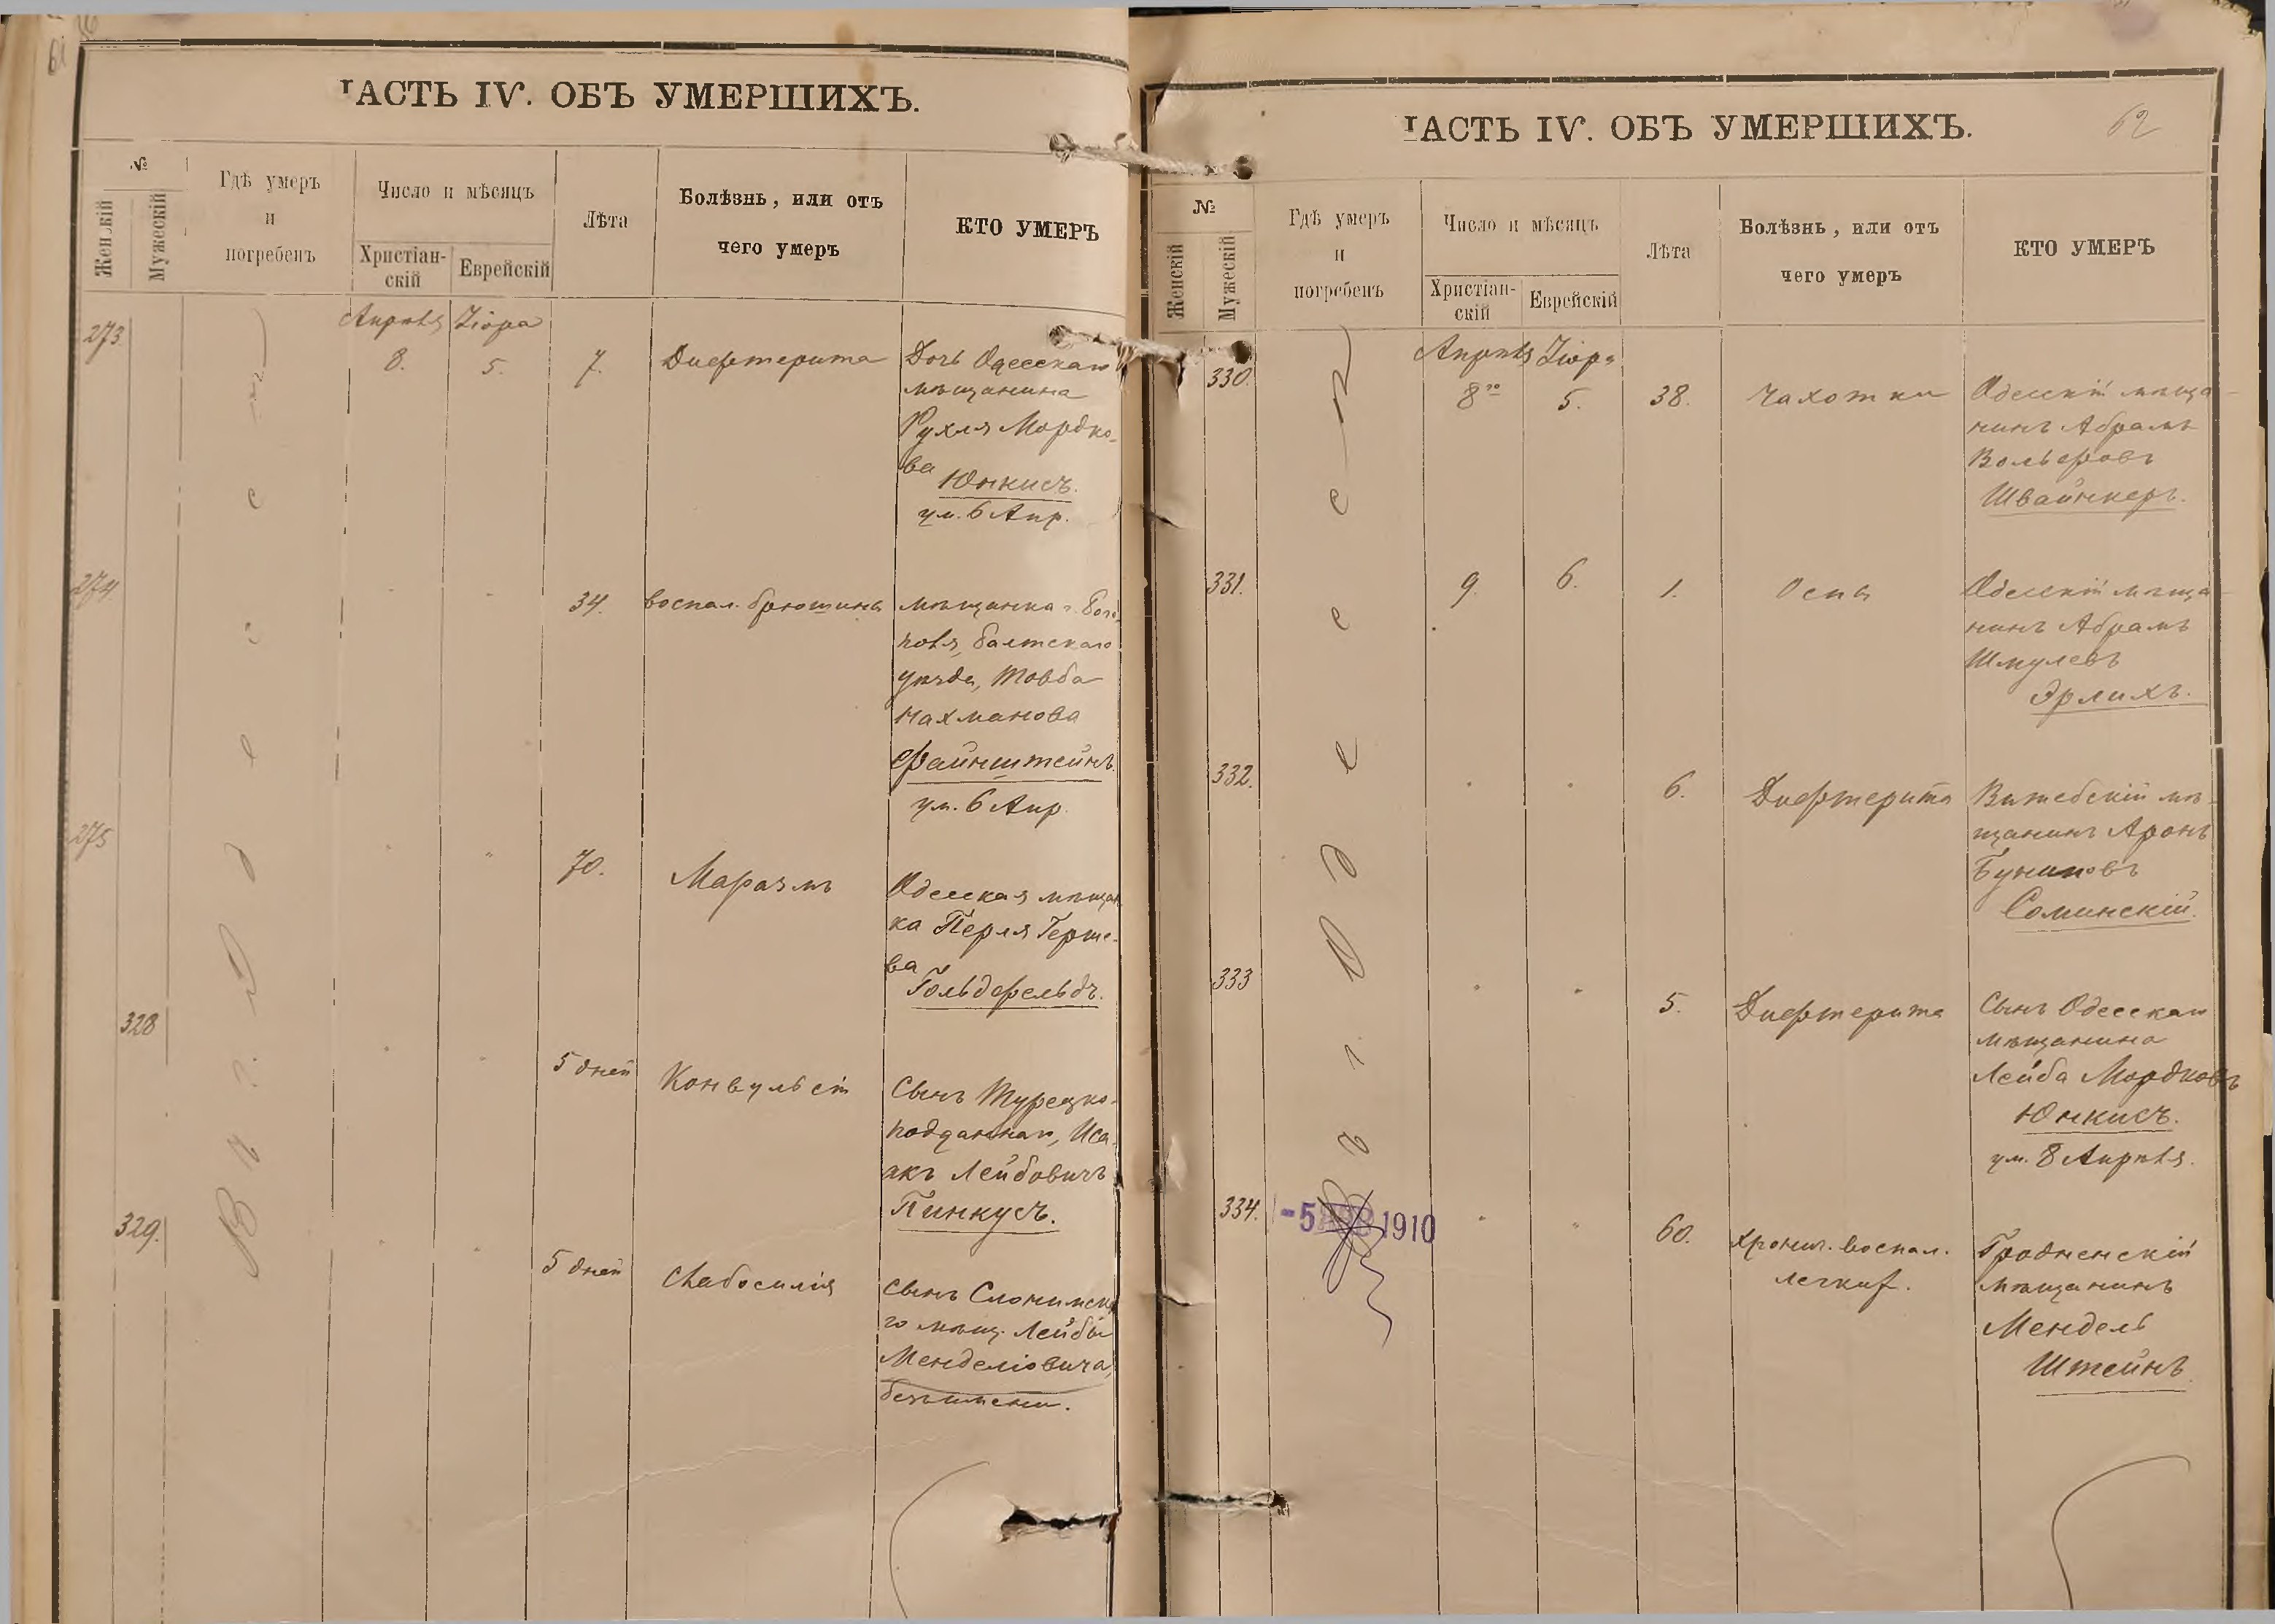 61
ЧАСТЬ IV. ОБЪ УМЕРШИХЪ.
№
Женскій
Мужескій
Гдѣ умеръ
и
погребенъ
Число и мѣсяцъ
Христіан-
скій
Еврейскій
Лѣта
Болѣзнь, или отъ
чего умеръ
КТО УМЕРЪ
Въ г. Одессе
Апрѣля Іюра
273
8. 5. 7. Дифтерита
Дочь Одесскаго
мѣщанина
Рухля Мордко-
ва
Юнкисъ.
ум. 6 Апр.
274
" " 34. воспал. брюшины
мѣщанка г. Бого-
поля, Балтскаго
уѣзда, Товба
Нахманова
Файнштейнъ.
ум. 6 Апр.
275
" " 70. Маразмъ
Одесская мѣщан
ка Перля Герше-
ва
Гольдфельдъ.
328
" " 5 дней Конвульсіи
Сынъ Турецко-
подданнаго, Иса-
акъ Лейбовичъ
Пинкусъ.
329.
" " 5 дней Слабосилія
сынъ Слонимска
го мѣщ. Лейбы
Менделіовича,
безъ имени.
62
ЧАСТЬ IV. ОБЪ УМЕРШИХЪ.
№
Женскій
Мужескій
Гдѣ умеръ
и
погребенъ
Число и мѣсяцъ
Христіан-
скій
Еврейскій
Лѣта
Болѣзнь, или отъ
чего умеръ
КТО УМЕРЪ
Въ г. Одессе
Апрѣля Іюра
330.
8го 5. 38. Чахотки
Одесскій мѣща-
нинъ Абрамъ
Вольфовъ
Швайнкеръ.
331.
9. 6. 1. Оспы
Одесскій мѣща-
нинъ Абрамъ
Шмулевъ
Эрлихъ.
332.
" " 6. Дифтерита
Витебскій мѣ-
щанинъ Аронъ
Буниновъ
Соминскій.
333
" " 5. Дифтерита
Сынъ Одесскаго
мѣщанина
Лейба Мордковъ
Юнкисъ.
ум. 8 Апрѣля.
334.
-5 1910
" " 60. хронич. воспал.
легких.
Гродненскій
мѣщанинъ
Мендель
Штейнъ.